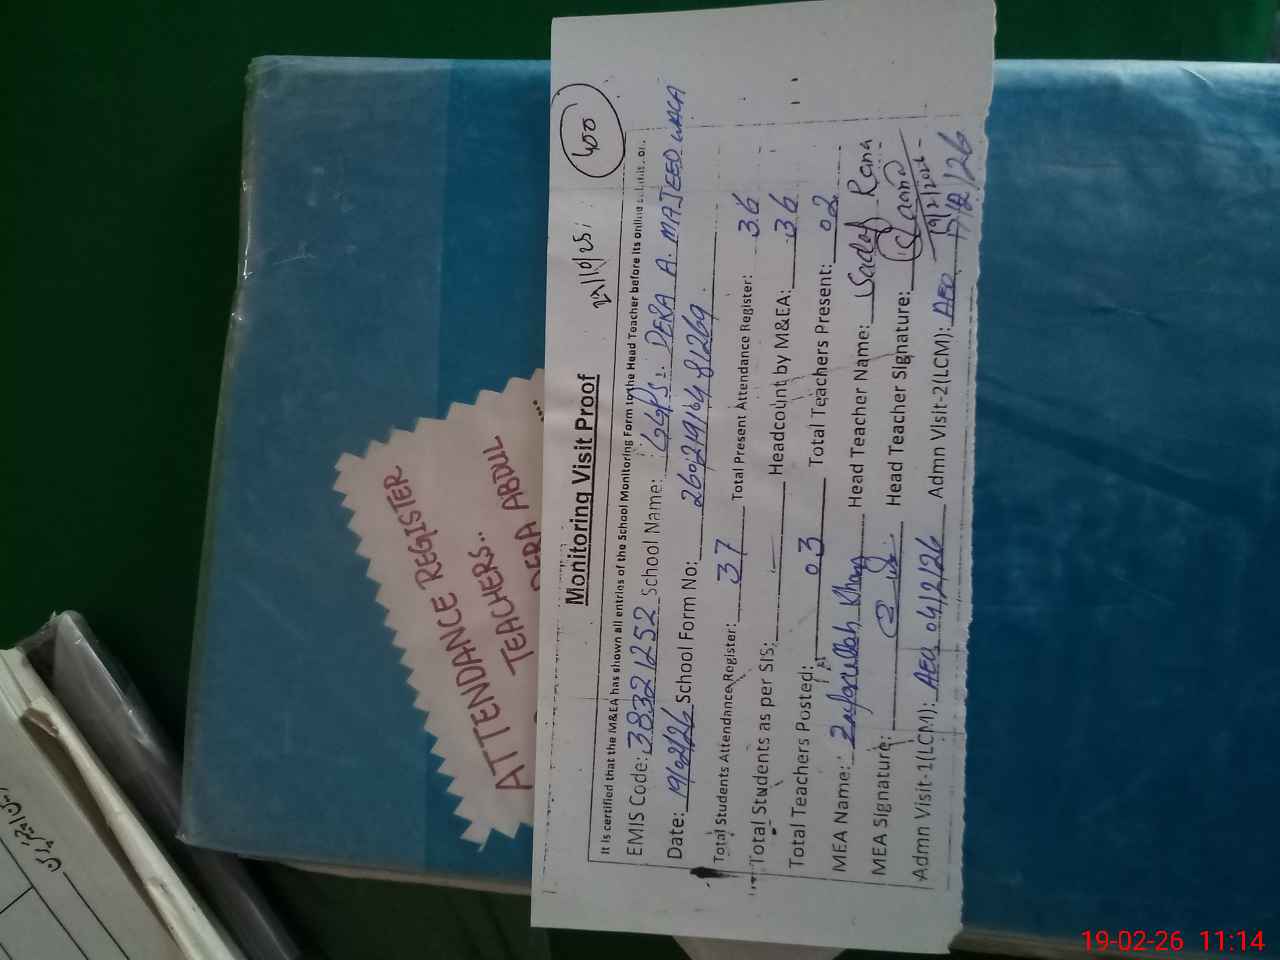 Monitoring Visit Proof
400
It is certified that the M&EA has shown all entries of the School Monitoring Form to the Head Teacher before its online
EMIS Code: 38321252 School Name: GGPS: DERA A. MAJEED
Date: 19/02/26 School Form No:
Total Students Attendance Register: 37 Total Present Attendance Register: 36
Total Students as per SIS: Headcount by M&EA: 36
Total Teachers Posted: 03 Total Teachers Present: 02
MEA Name: Zafarullah Khan Head Teacher Name: Sadaf Rana
MEA Signature: Head Teacher Signature:
19/2/2026
Admn Visit-1(LCM): AEO 04/2/26 Admn Visit-2(LCM): AEO
ATTENDANCE REGISTER
TEACHERS..
DERA ABDUL
19-02-26 11:14